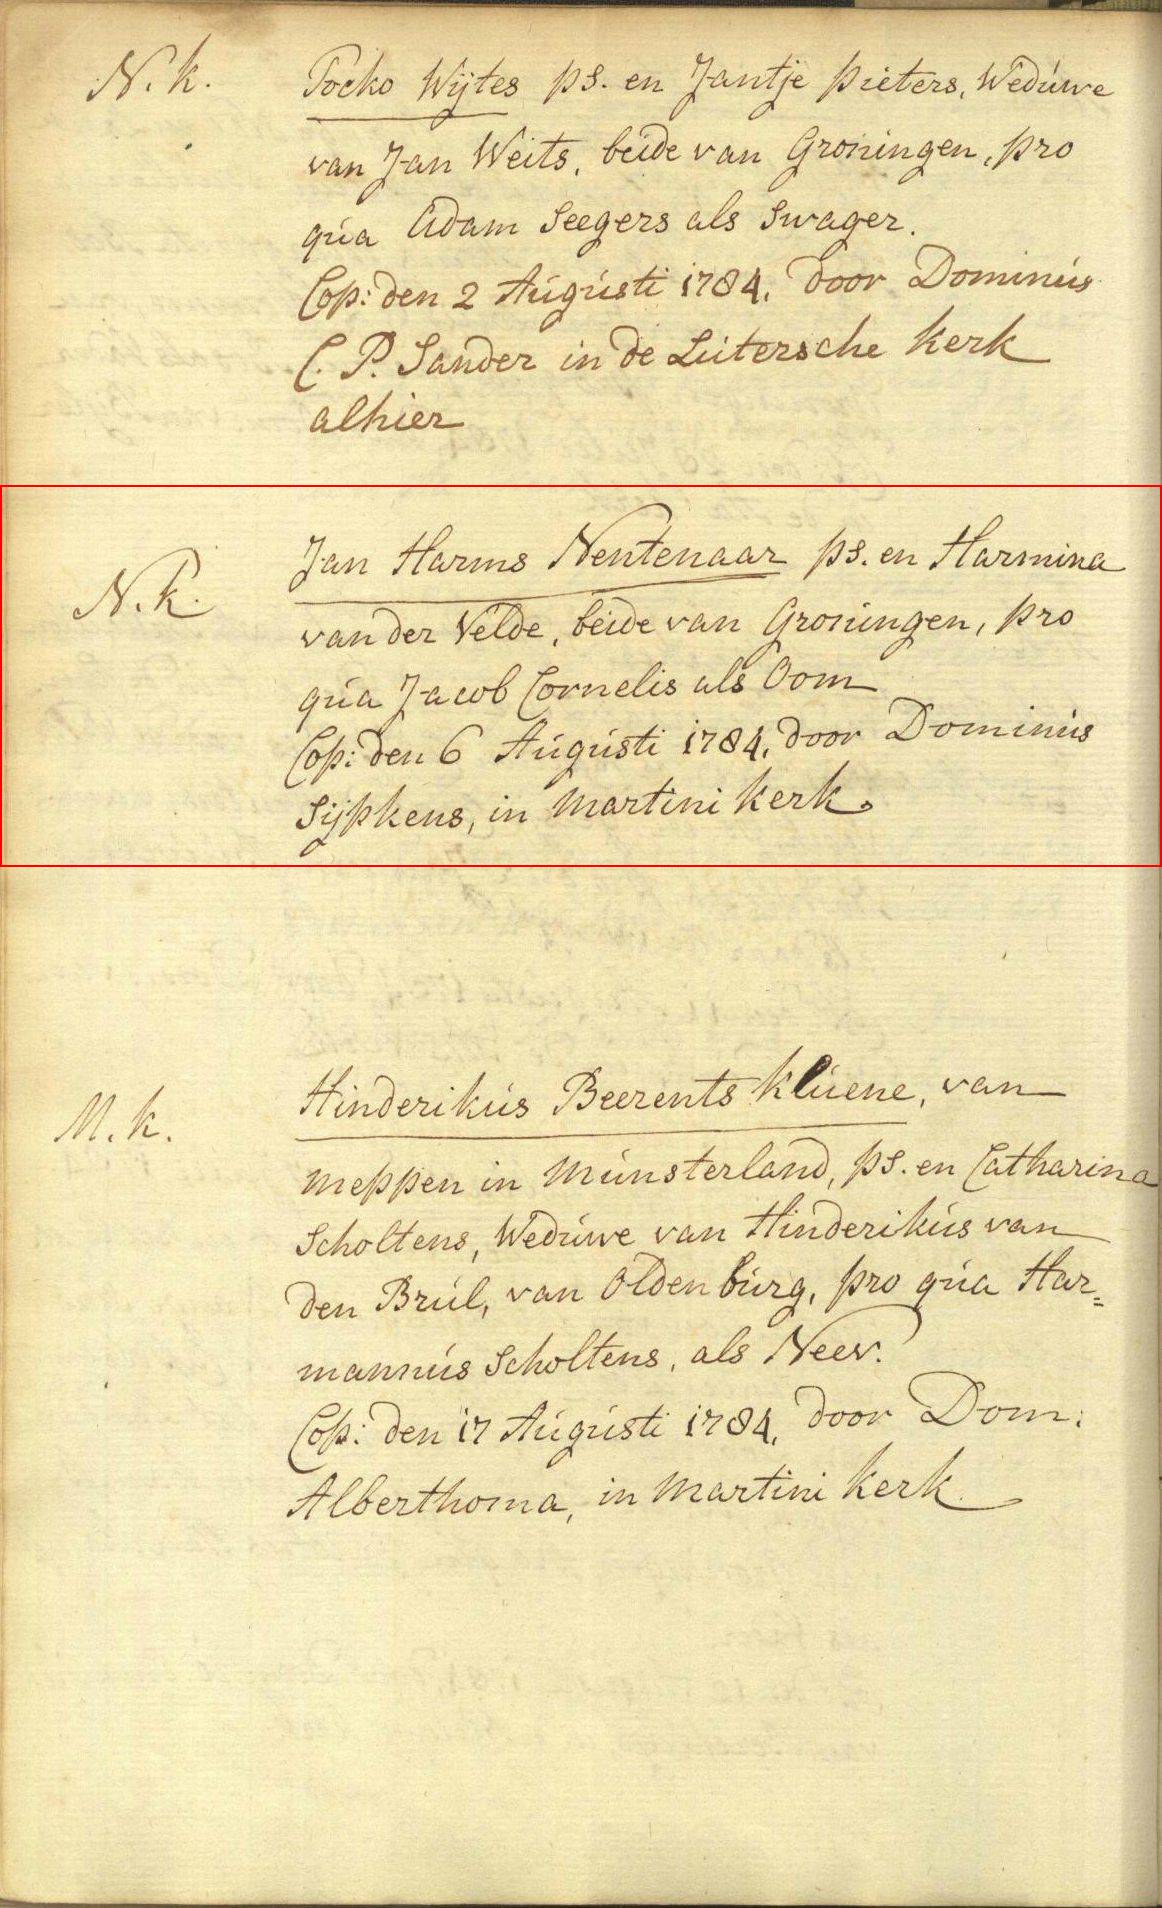 N. k. Pocko Wijtes ps. en Jantje Pieters, Weduwe
van Jan Weits, beide van Groningen, pro
qua Adam Seegers als Swager.
Cop: den 2 Augusti 1784, door Dominus
C. P. Sander in de Lutersche Kerk
alhier
N. k. Jan Harms Nentenaar ps. en Harmina
van der Velde, beide van Groningen, pro
qua Jacob Cornelis als Oom
Cop: den 6 Augusti 1784, door Dominus
Sijpkens, in Martini Kerk.
M. k. Hinderikus Beerents Kluene, van
Meppen in Munsterland, ps. en Catharina
Scholtens, Weduwe van Hinderikus van
den Brul, van Oldenburg, pro qua Har=
mannus Scholtens, als Neev.
Cop: den 17 Augusti 1784, door Dom:
Alberthoma, in Martini Kerk